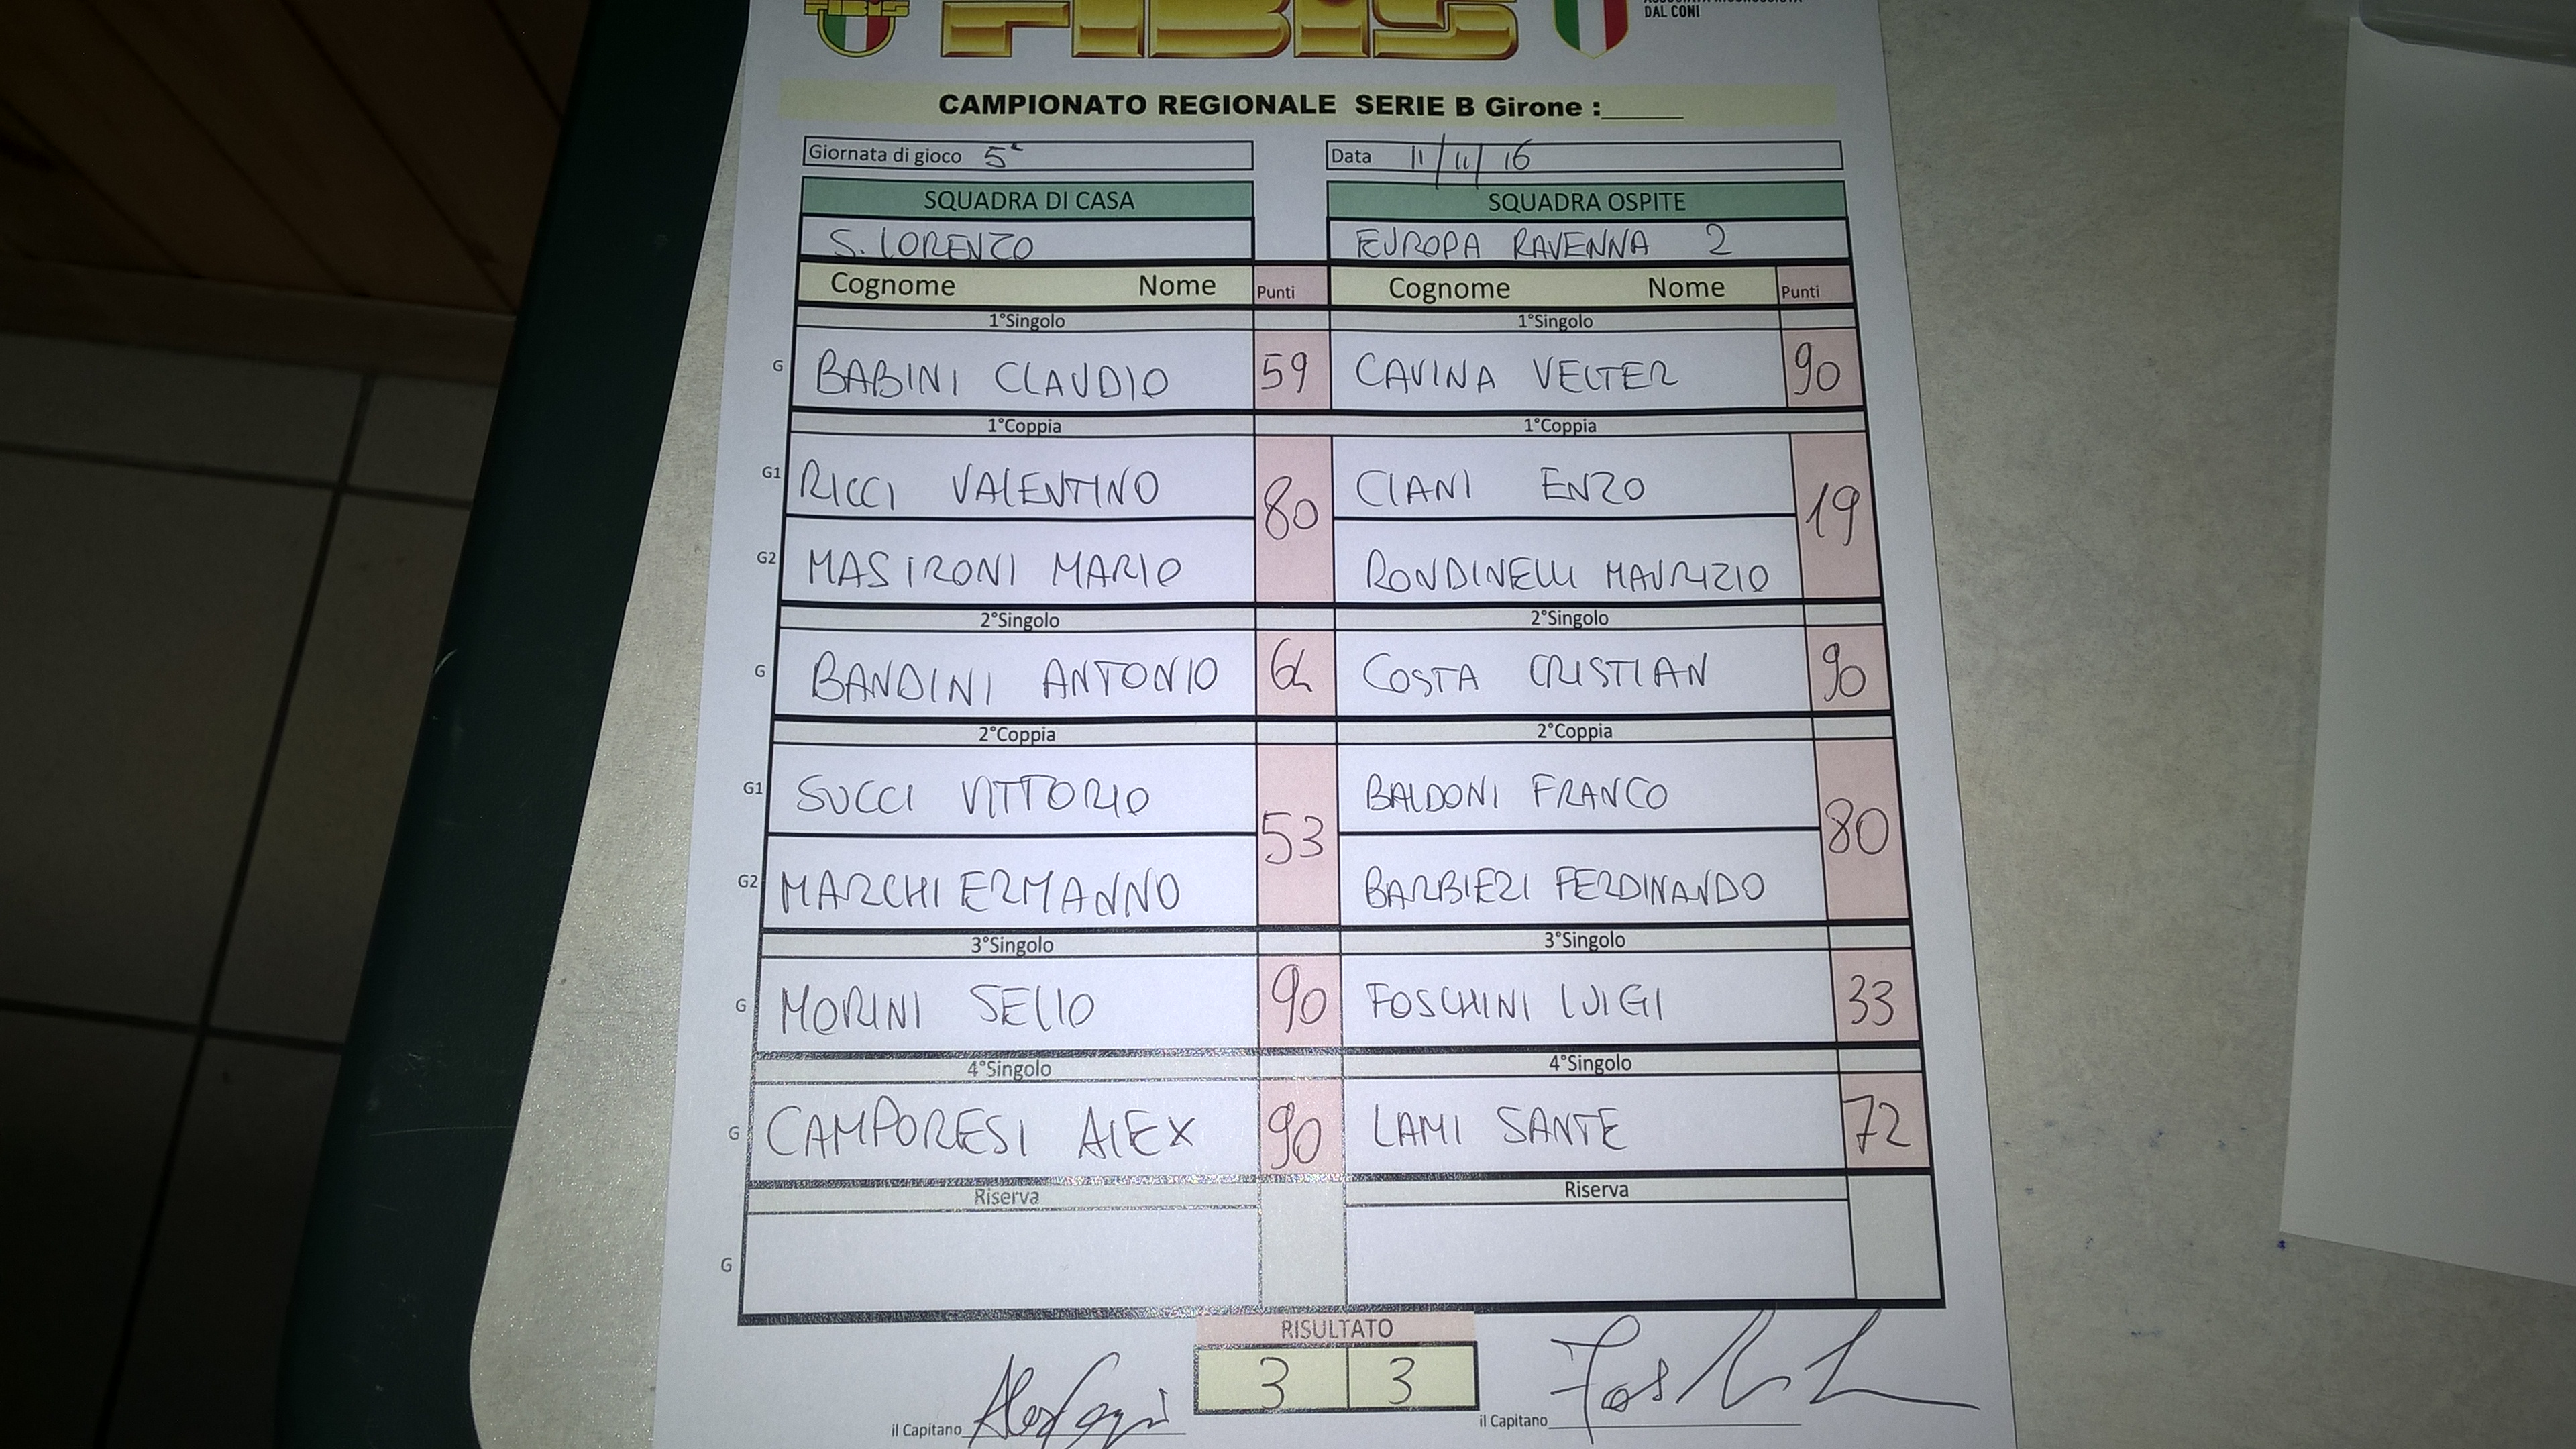 FIBIS
FIBIS
DAL CONI
CAMPIONATO REGIONALE SERIE B Girone :
Giornata di gioco 5ª Data 11/11/16
SQUADRA DI CASA SQUADRA OSPITE
S. LORENZO EUROPA RAVENNA 2
Cognome Nome Punti Cognome Nome Punti
1°Singolo 1°Singolo
G BABINI CLAUDIO 59 CAVINA VELTER 90
1°Coppia 1°Coppia
G1 RICCI VALENTINO 80 CIANI ENZO 19
G2 MASIRONI MARIO RONDINELLI MAURIZIO
2°Singolo 2°Singolo
G BANDINI ANTONIO 64 COSTA CRISTIAN 90
2°Coppia 2°Coppia
G1 SUCCI VITTORIO 53 BALDONI FRANCO 80
G2 MARCHI ERMANNO BARBIERI FERDINANDO
3°Singolo 3°Singolo
G MORINI SELIO 90 FOSCHINI LUIGI 33
4°Singolo 4°Singolo
G CAMPORESI ALEX 90 LAMI SANTE 72
Riserva Riserva
G
RISULTATO
3 3
il Capitano il Capitano